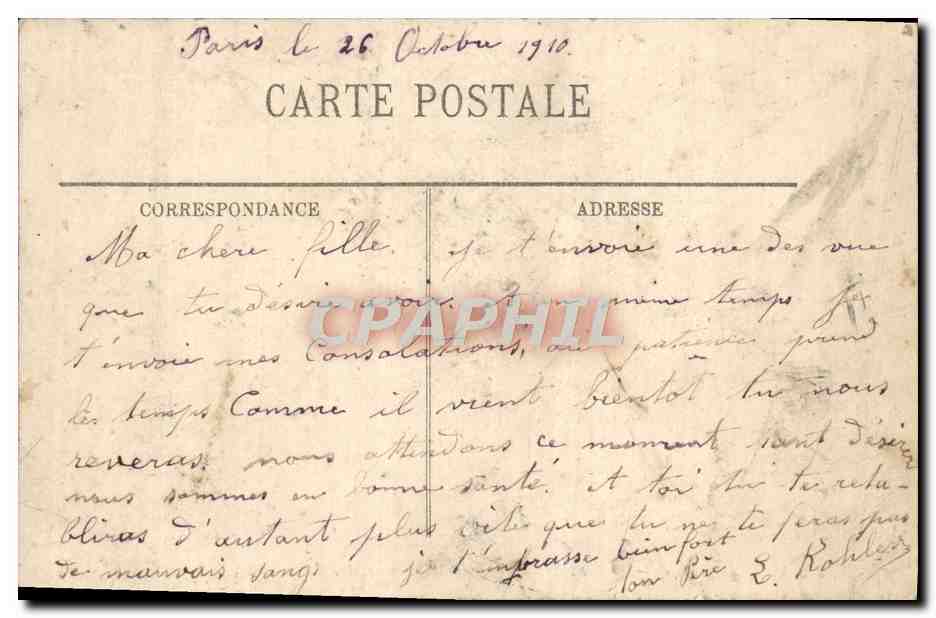 Paris le 26 Octobre 1910.
CARTE POSTALE
CORRESPONDANCE
ADRESSE
Ma chere fille. je t'envoie une des vue
que tu désire avoir. En même temps je
t'envoie mes Consolations, ai patience prend
les temps Comme il vient bientot tu nous
reveras. nous attendons ce moment tant désirer
nous sommes en bonne santé. et toi tu te reta-
bliras d'autant plus vite que tu ne te feras pas
de mauvais sang. je t'embrasse bien fort
ton Père E. Kohler
CPAPHIL